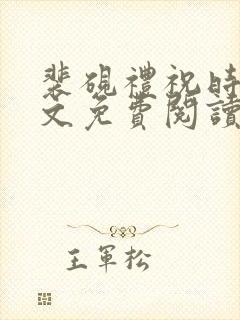 裴硯禮祝時
文免費閱讀
王軍松